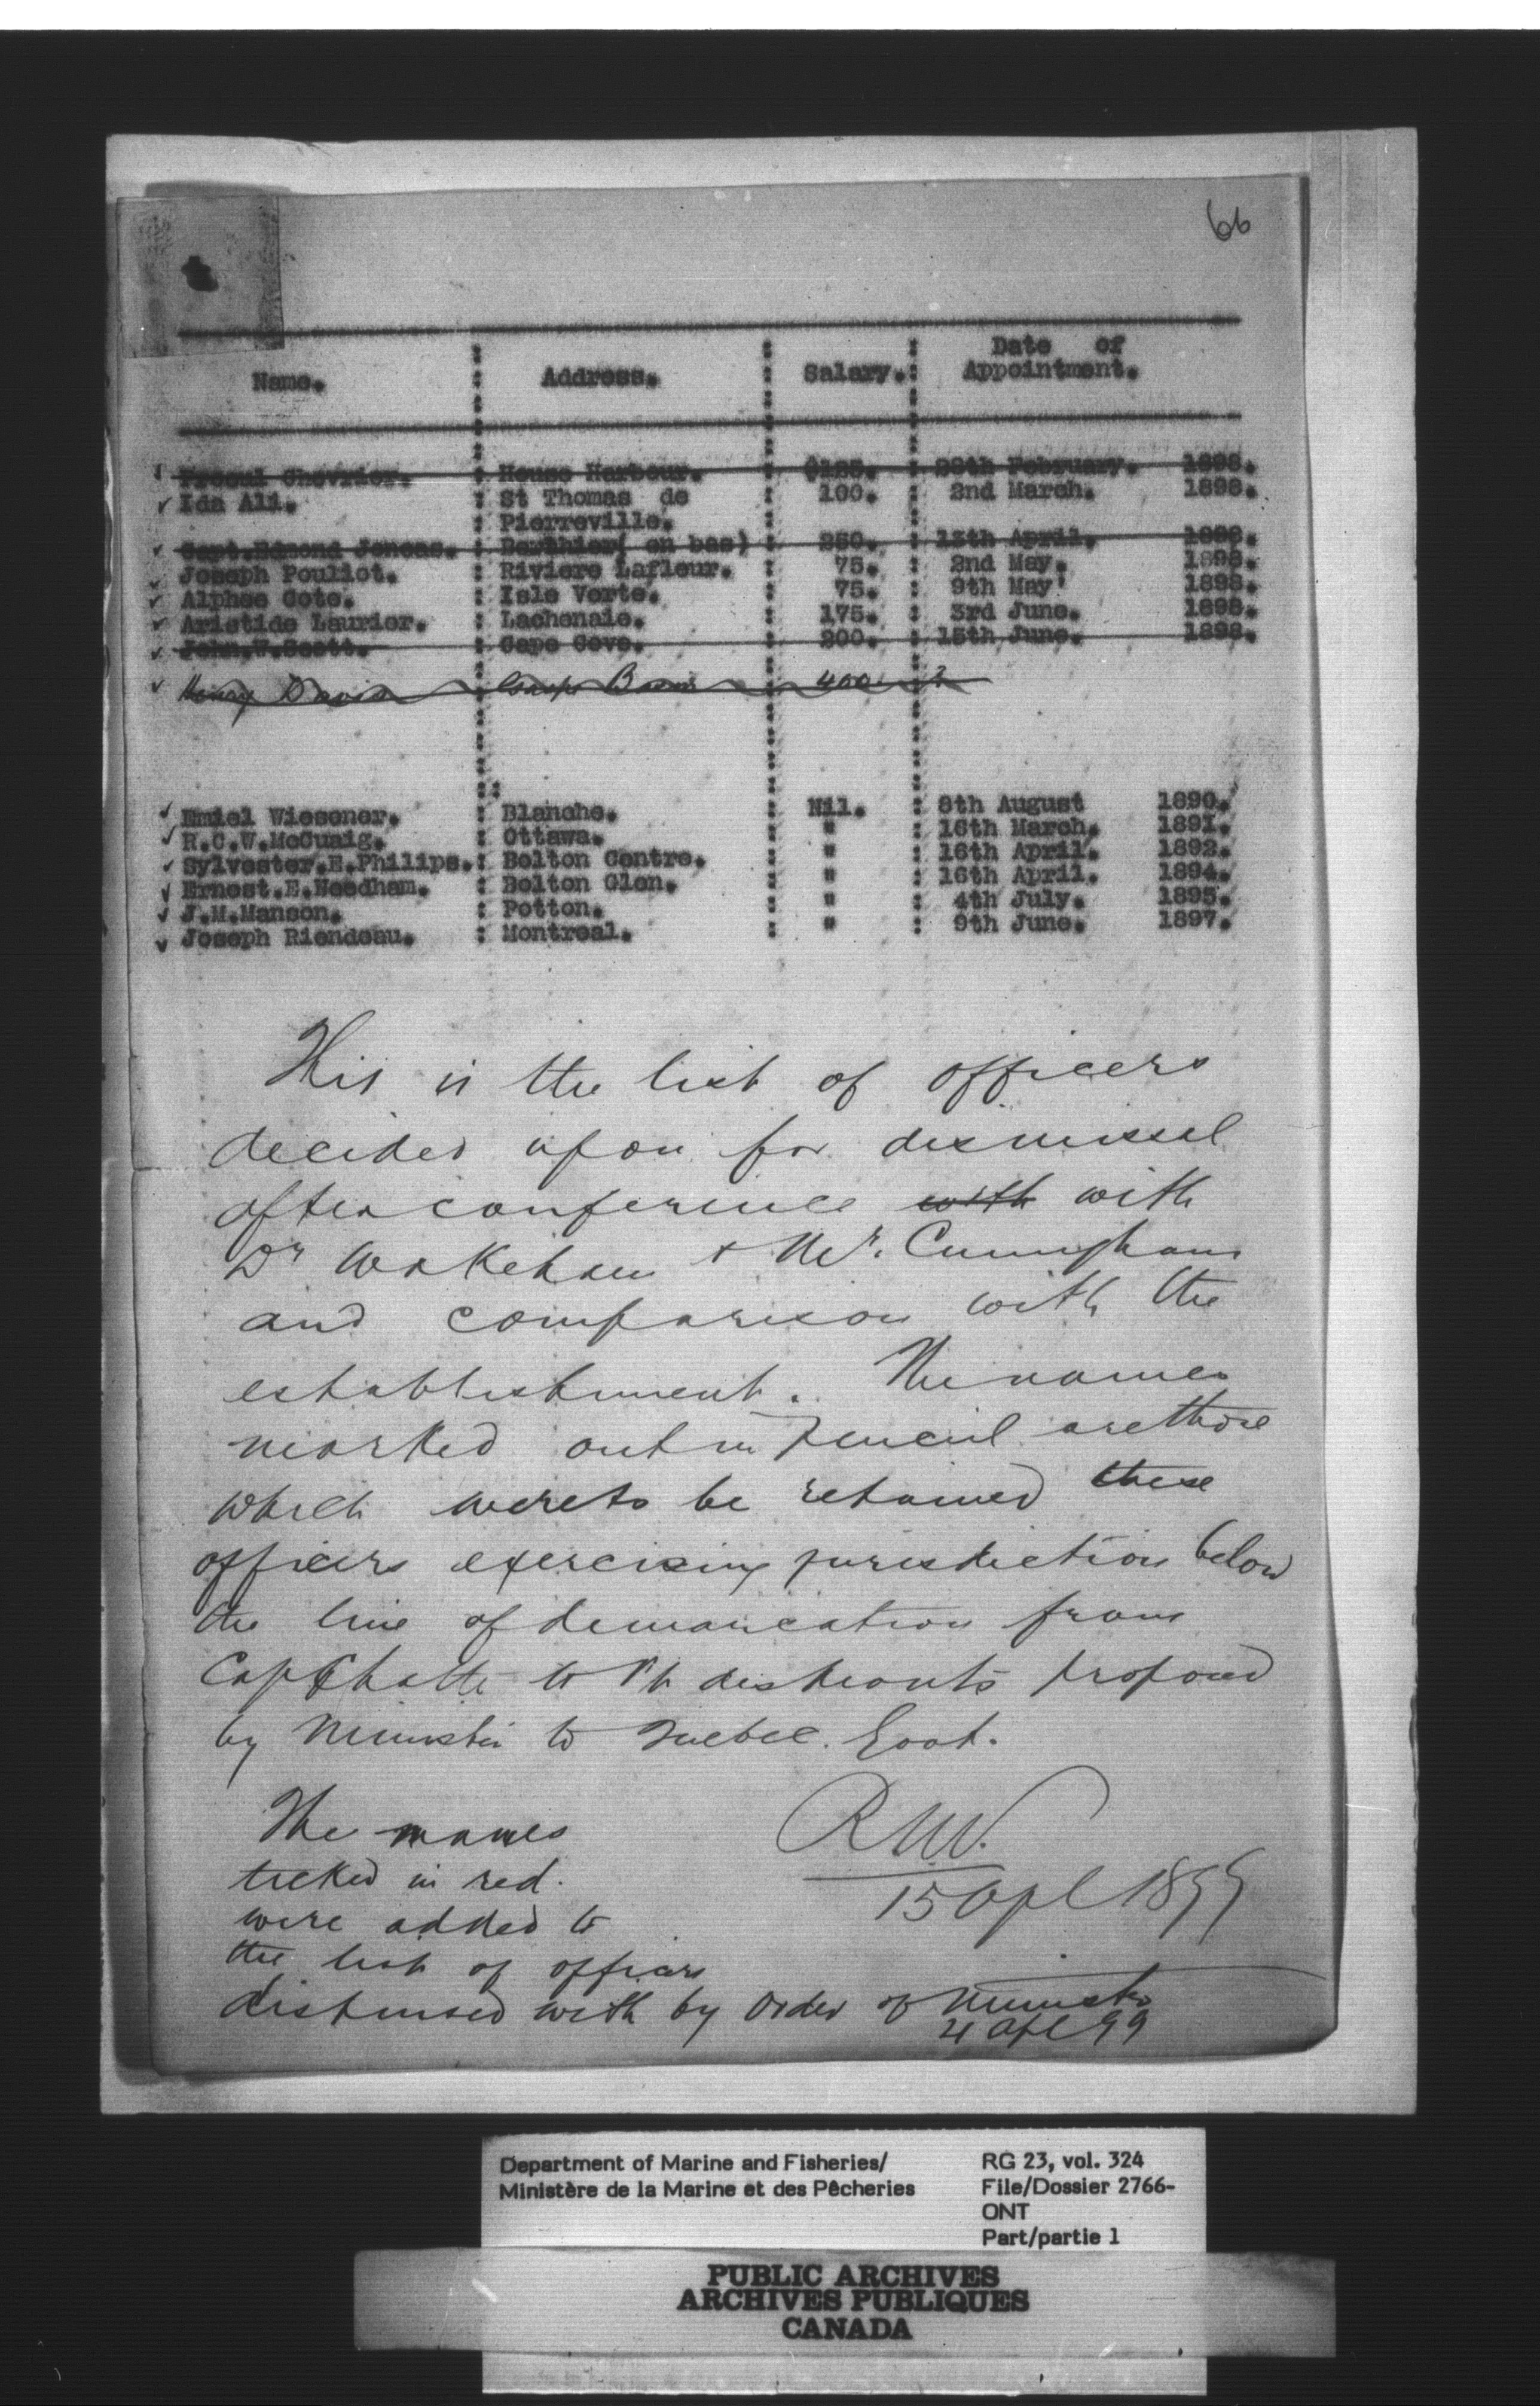 66
Name. : Address. : Salary. : Date of Appointment.
Chevrier. : House Harbour. : $125. : 28th February. 1898.
Ida Ali. : St Thomas de : 100. : 2nd March. 1898.
: Pierreville.
Capt.Edmond Joncas. : Berthier( en bas) : 250. : 13th April. 1898.
Joseph Pouliot. : Riviere Lafleur. : 75. : 2nd May. 1898.
Alphee Cote. : Isle Verte. : 75. : 9th May 1898.
Aristide Laurier. : Lachenaie. : 175. : 3rd June. 1898.
John.W.Scott. : Cape Cove. : 200. : 15th June. 1898.
Henry Davis Gaspe Basin 400 ?
Emiel Wiesener. : Blanche. Nil. : 8th August 1890.
R.C.W.McCuaig. : Ottawa. : " : 16th March. 1891.
Sylvester.E.Philips. : Bolton Centre. : " : 16th April. 1892.
Ernest.E.Needham. : Bolton Glen. : " : 16th April. 1894.
J.M.Manson. : Potton. : " : 4th July. 1895.
Joseph Riendeau. : Montreal. : " : 9th June. 1897.
This is the list of officers
decided upon for dismissal
after conference with with
Dr Wakeham + Mr. Cunningham
and comparison with the
establishment. The names
marked out in pencil are those
which were to be retained these
officers exercising jurisdiction below
the line of demarcation from
Cap Chatte to Pt des Monts proposed
by Minister to Quebec. Govt.
R.N.V.
15 Apl 1899
The names
ticked in red.
were added to
the list of officers
dispensed with by order of Minister
4 Apl 99
Department of Marine and Fisheries/
Ministère de la Marine et des Pêcheries
RG 23, vol. 324
File/Dossier 2766-
ONT
Part/partie 1
PUBLIC ARCHIVES
ARCHIVES PUBLIQUES
CANADA